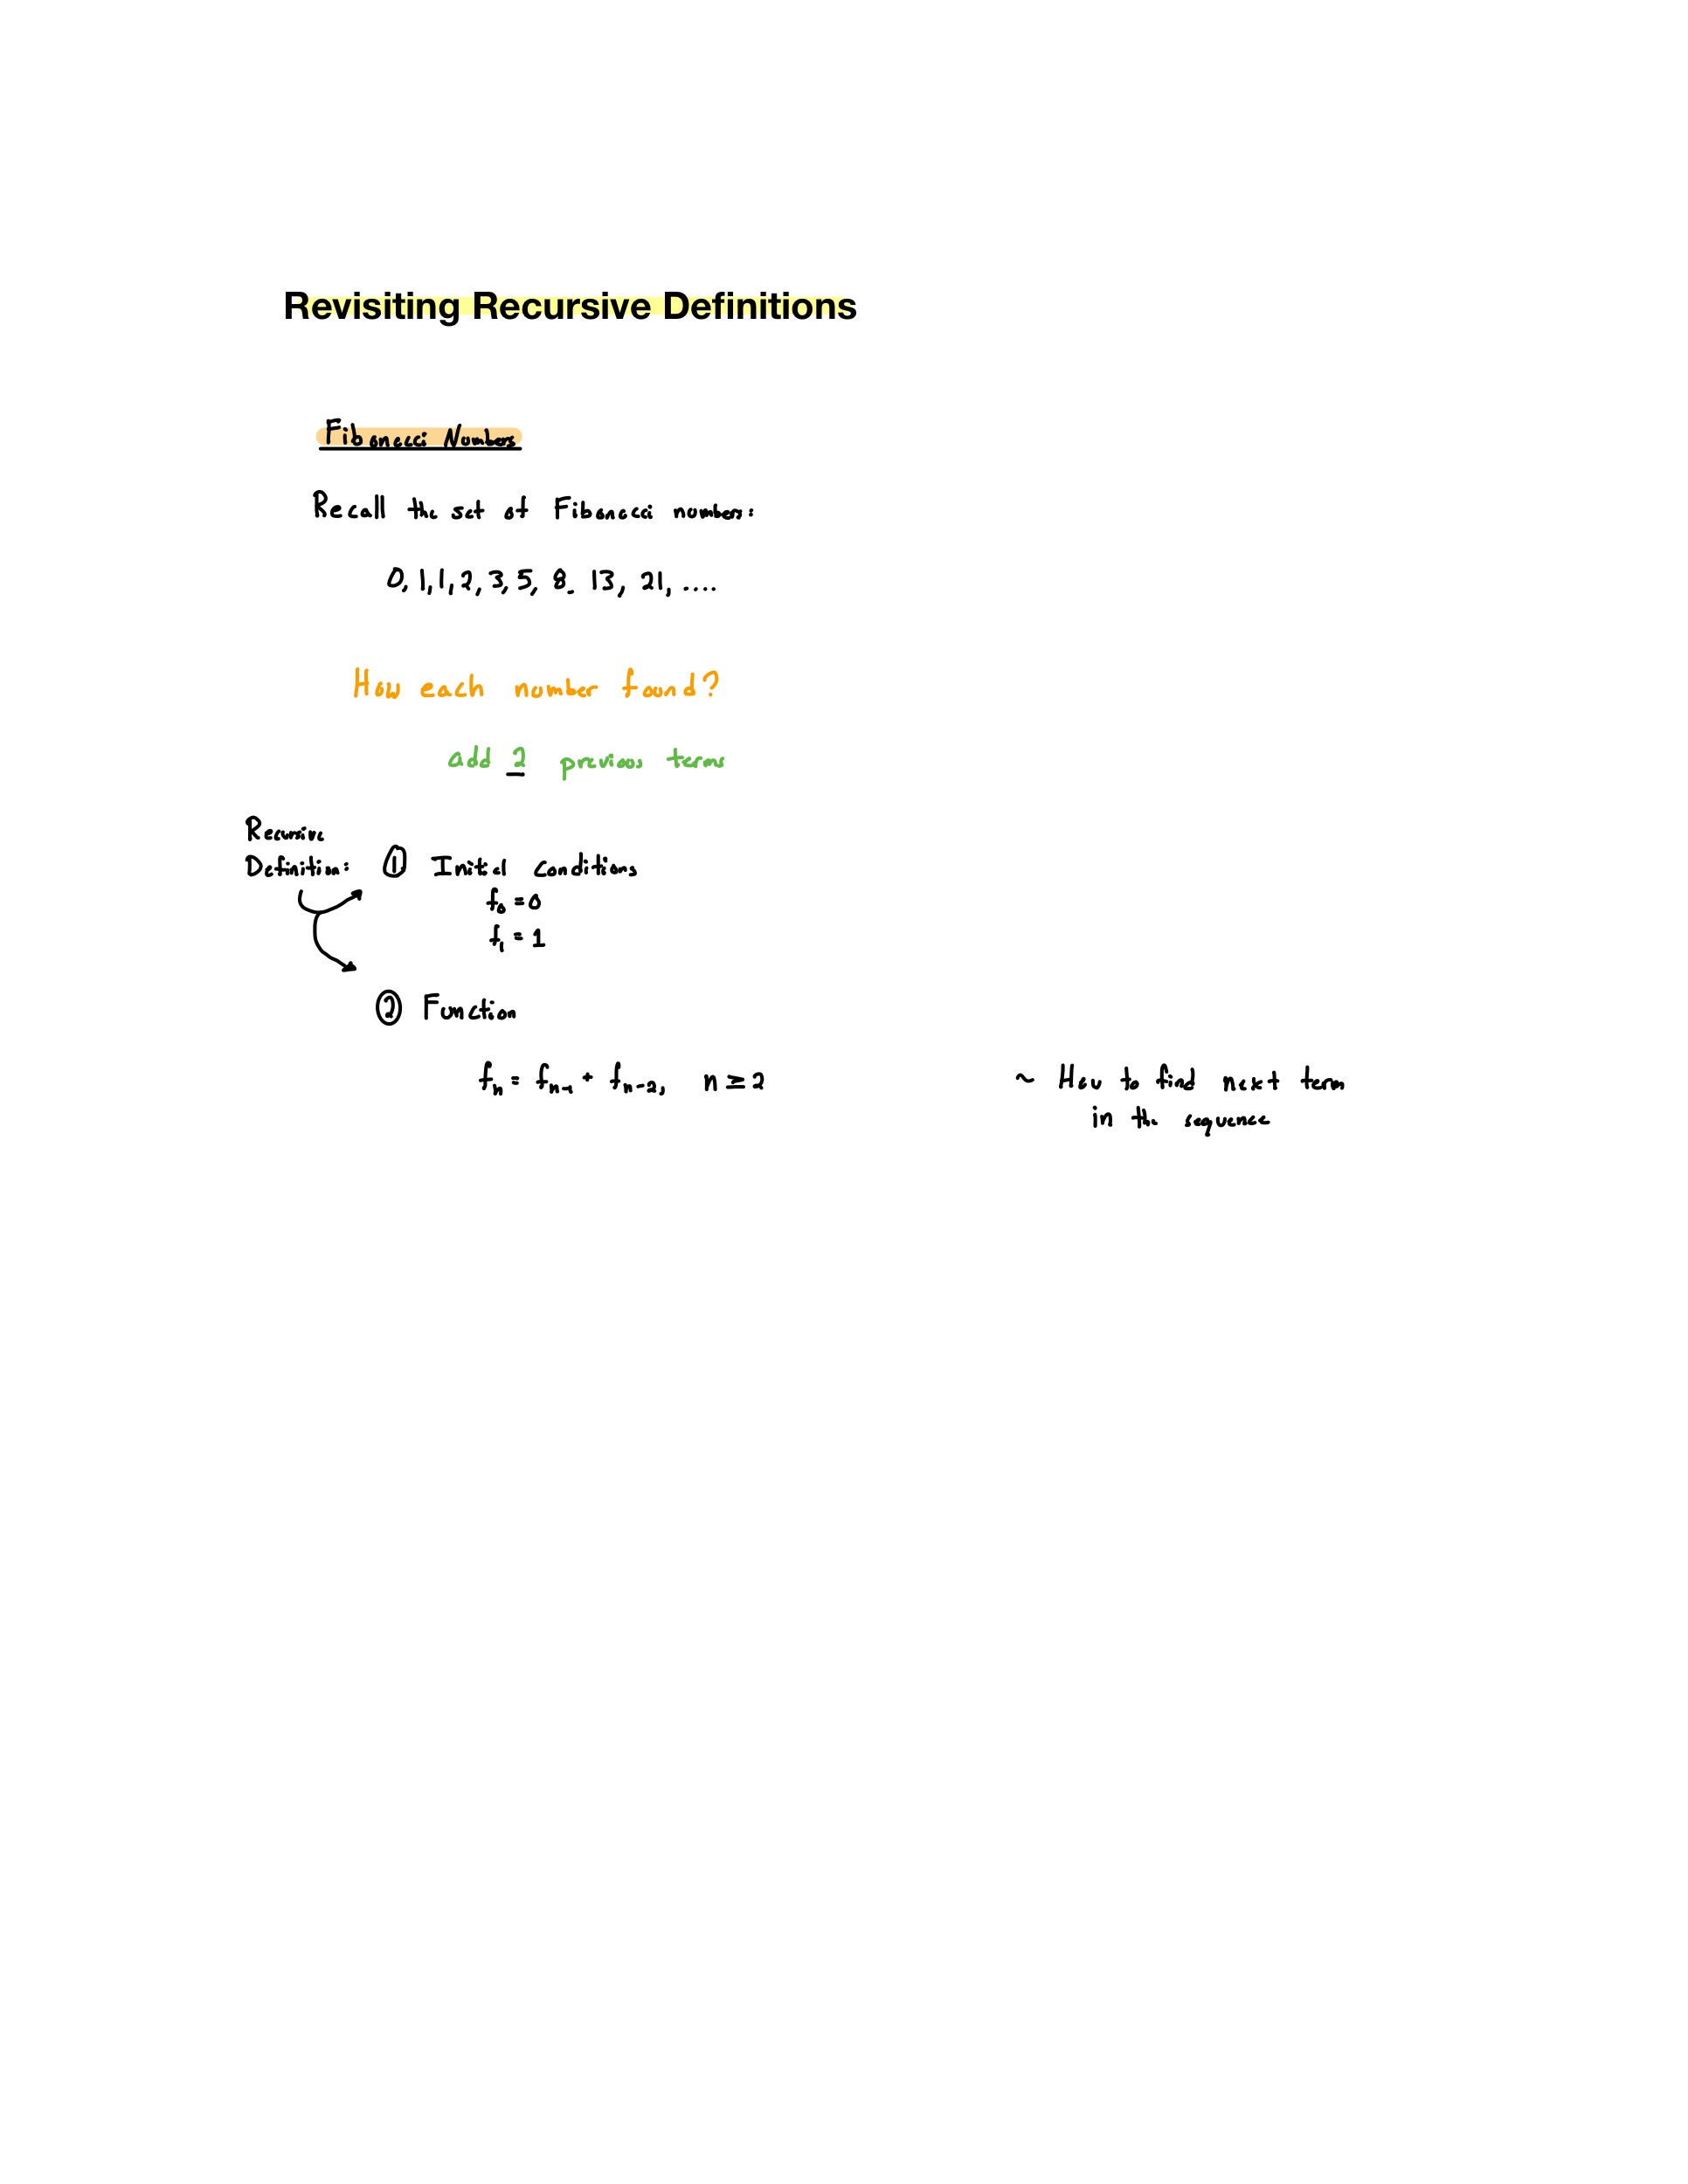 Revisiting Recursive Definitions
Fibonacci Numbers
Recall the set of Fibonacci numbers:
0, 1, 1, 2, 3, 5, 8, 13, 21, ....
How each number found?
add 2 previous terms
Recursive
Definition: ① Initial Conditions
f₀ = 0
f₁ = 1
② Function
fₙ = fₙ₋₁ + fₙ₋₂, n ≥ 2 ~ How to find next term
in the sequence